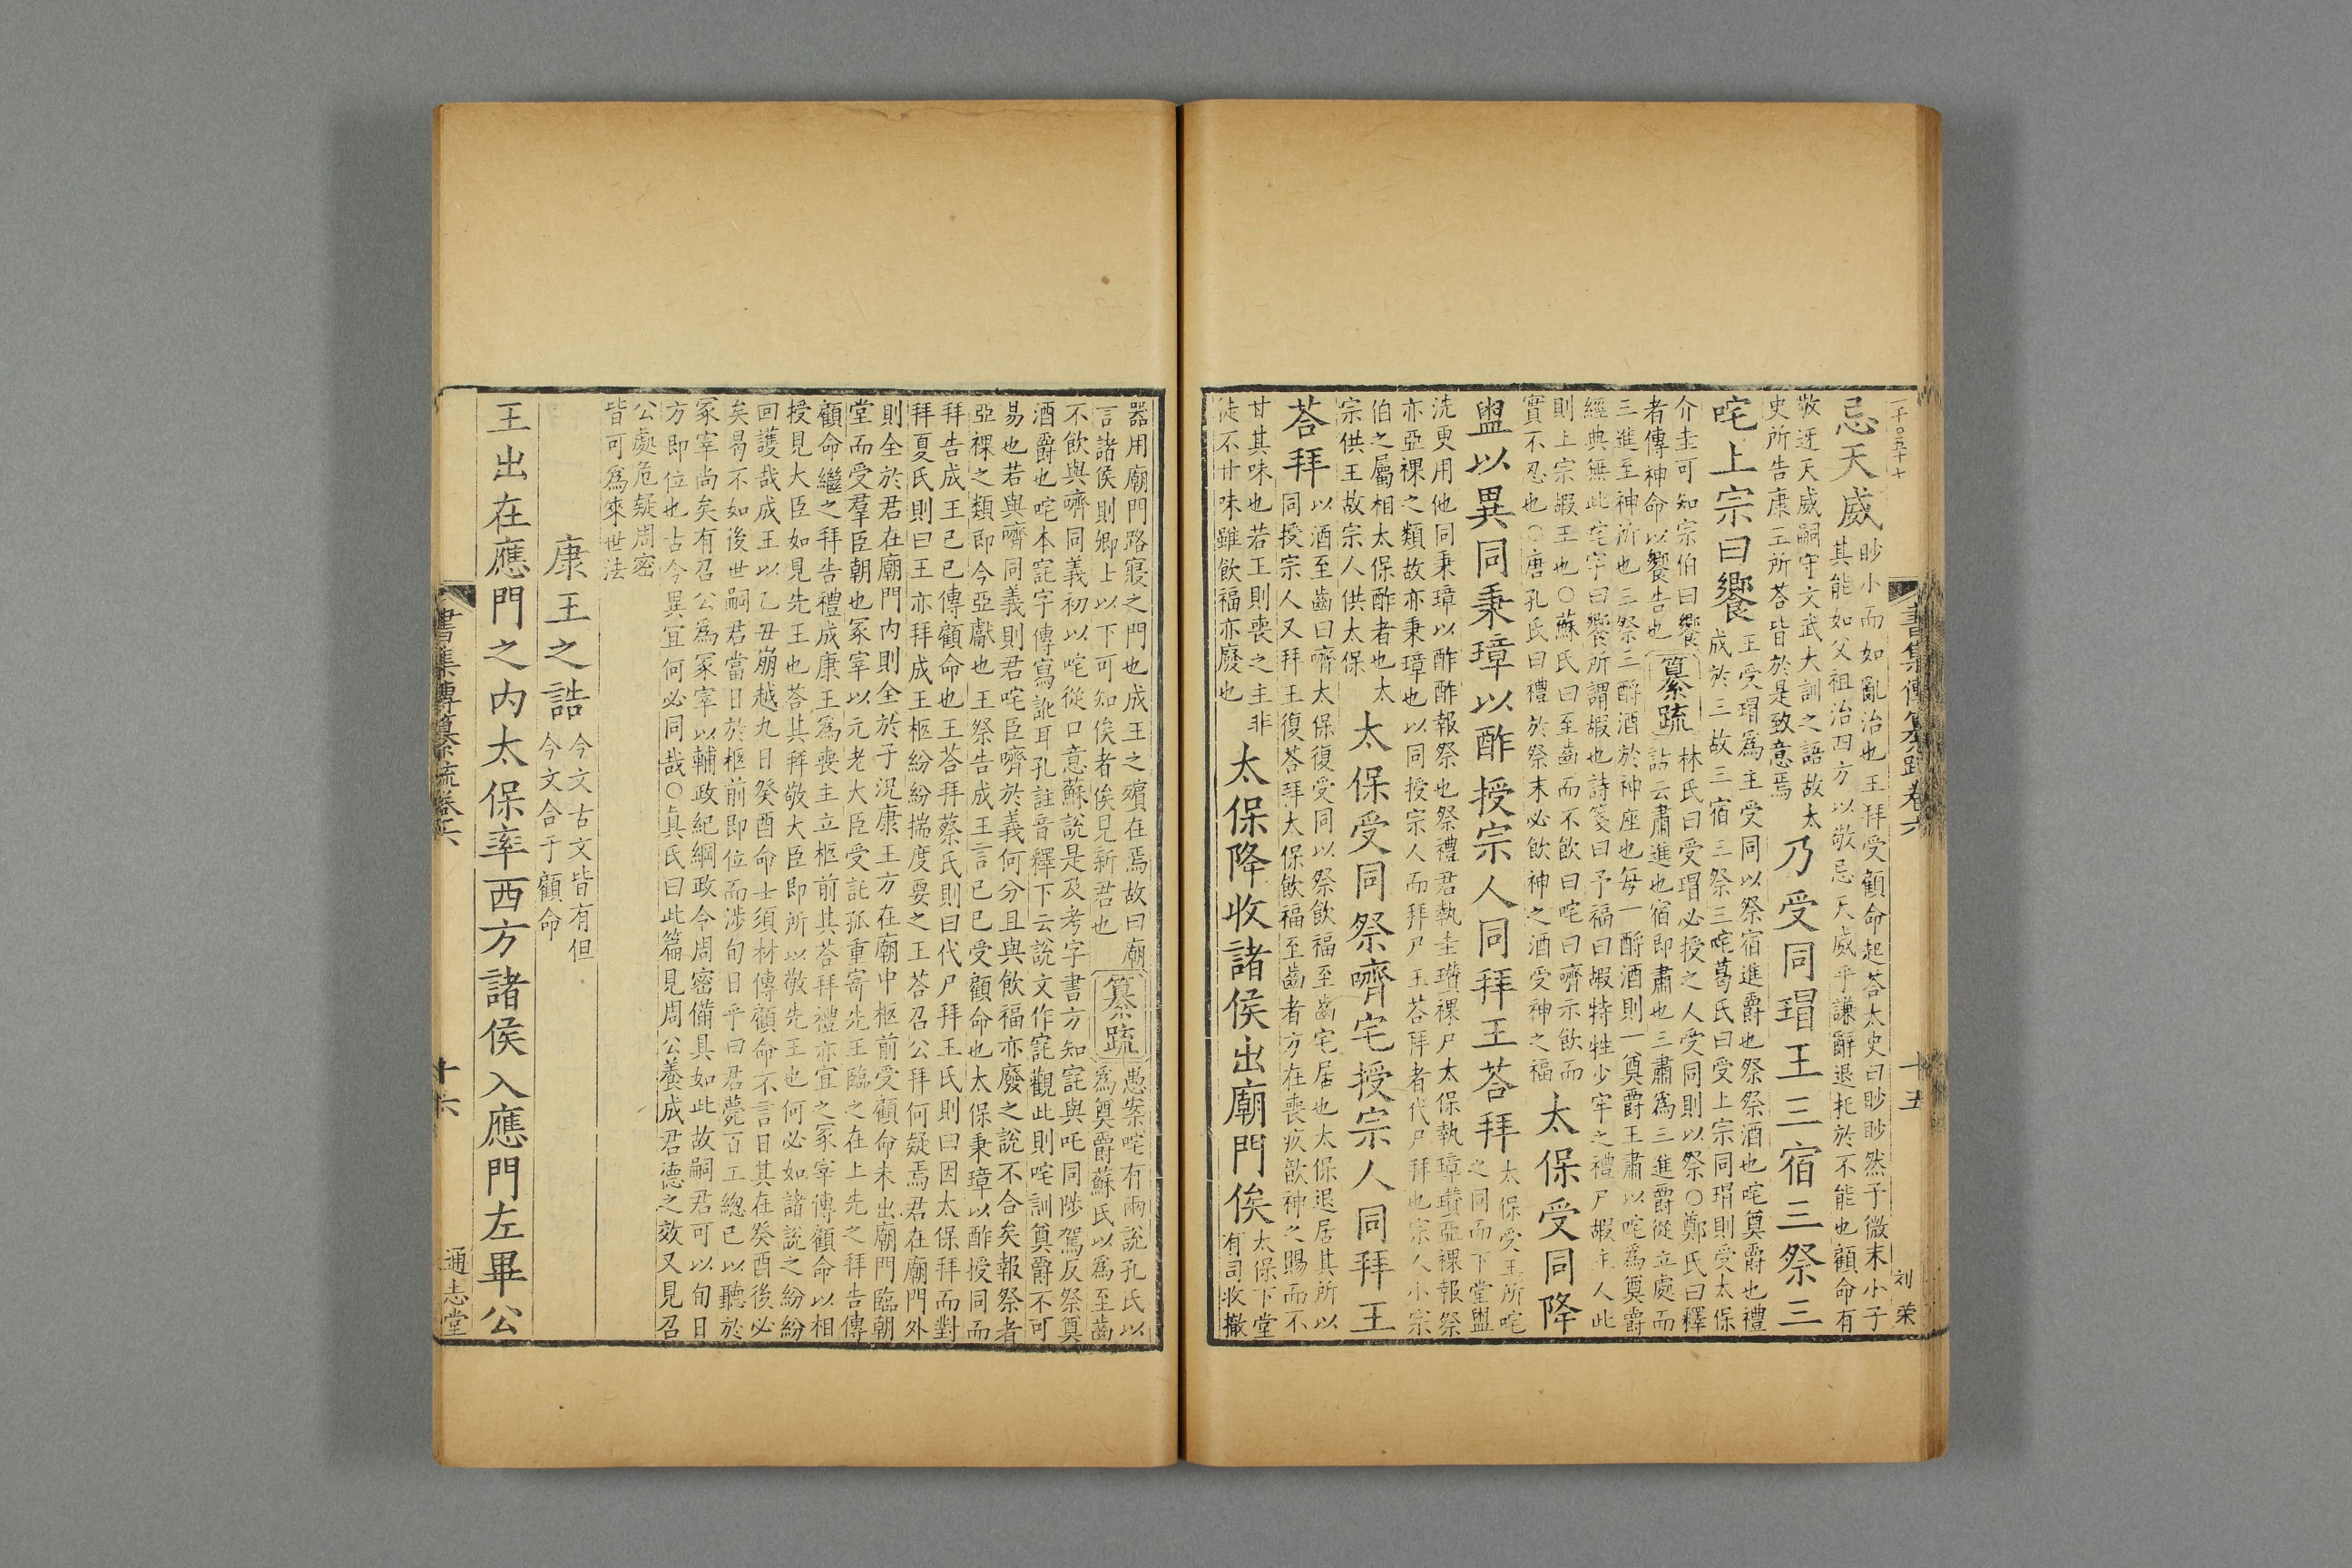 一千〇五十七
書集傳纂疏卷六
十五
刘荣
忌天威眇小而如亂治也王拜受顧命起荅太史曰眇眇然予微末小子
其能如父祖治四方以敬忌天威乎謙辭退托於不能也顧命有
敬迓天威嗣守文武大訓之語故太
史所告康王所荅皆於是致意焉乃受同瑁王三宿三祭三
咤上宗曰饗王受瑁爲主受同以祭宿進爵也祭祭酒也咤奠爵也禮
成於三故三宿三祭三咤葛氏曰受上宗同瑁則受太保
介圭可知宗伯曰饗
者傳神命以饗告也纂疏林氏曰受瑁必授之人受同則以祭〇鄭氏曰釋
詁云肅進也宿即肅也三肅爲三進爵從立處而
三進至神所也三祭三酹酒於神座也每一酹酒則一奠爵王肅以咤爲奠爵
經典無此咤字曰饗所謂嘏也詩箋曰予福曰嘏特牲少牢之禮尸嘏主人此
則上宗嘏王也〇蘇氏曰至齒而不飲曰咤曰嚌示飲而
實不忍也〇唐孔氏曰禮於祭末必飲神之酒受神之福太保受同降
盥以異同秉璋以酢授宗人同拜王荅拜太保受王所咤
之同而下堂盥
洗更用他同秉璋以酢酢報祭也祭禮君執圭瓚祼尸太保執璋瓚亞祼報祭
亦亞祼之類故亦秉璋也以同授宗人而拜尸王荅拜者代尸拜也宗人小宗
伯之屬相太保酢者也太
宗供王故宗人供太保太保受同祭嚌宅授宗人同拜王
荅拜以酒至齒曰嚌太保復受同以祭飲福至齒宅居也太保退居其所以
同授宗人又拜王復荅拜太保飲福至齒者方在喪疚歆神之賜而不
甘其味也若王則喪之主非
徒不甘味雖飲福亦廢也太保降收諸侯出廟門俟太保下堂
有司收撤
器用廟門路寢之門也成王之殯在焉故曰廟
言諸侯則卿士以下可知俟者俟見新君也纂疏愚案咤有兩說孔氏以
爲奠爵蘇氏以爲至齒
不飲與嚌同義初以咤從口意蘇說是及考字書方知宅與吒同陟駕反祭奠
酒爵也咤本宅字傳寫訛耳孔註音釋下云說文作宅觀此則咤訓奠爵不可
易也若與嚌同義則君咤臣嚌於義何分且與飲福亦廢之說不合矣報祭者
亞祼之類即今亞獻也王祭告成王言已已受顧命也太保秉璋以酢授同而
拜告成王已已傳顧命也王荅拜蔡氏則曰代尸拜王氏則曰因太保拜而對
拜夏氏則曰王亦拜成王柩紛紛揣度要之王荅召公拜何疑焉君在廟門外
則全於君在廟門内則全於子況康王方在廟中柩前受顧命未出廟門臨朝
堂而受羣臣朝也冢宰以元老大臣受託孤重寄先王臨之在上先之拜告傳
顧命繼之拜告禮成康王爲喪主立柩前其荅拜禮亦宜之冢宰傳顧命以相
授見大臣如見先王也荅其拜敬大臣即所以敬先王也何必如諸說之紛紛
回護哉成王以乙丑崩越九日癸酉命士須材傳顧命不言日其在癸酉後必
矣曷不如後世嗣君當日於柩前即位而涉旬日乎曰君薨百工總已以聽於
冢宰尚矣有召公爲冢宰以輔政紀綱政令周密備具如此故嗣君可以旬日
方即位也古今異宜何必同哉〇真氏曰此篇見周公養成君德之效又見召
公處危疑周密
皆可爲來世法
康王之誥今文古文皆有但
今文合于顧命
王出在應門之内太保率西方諸侯入應門左畢公
書集傳纂疏卷六
十六
通志堂